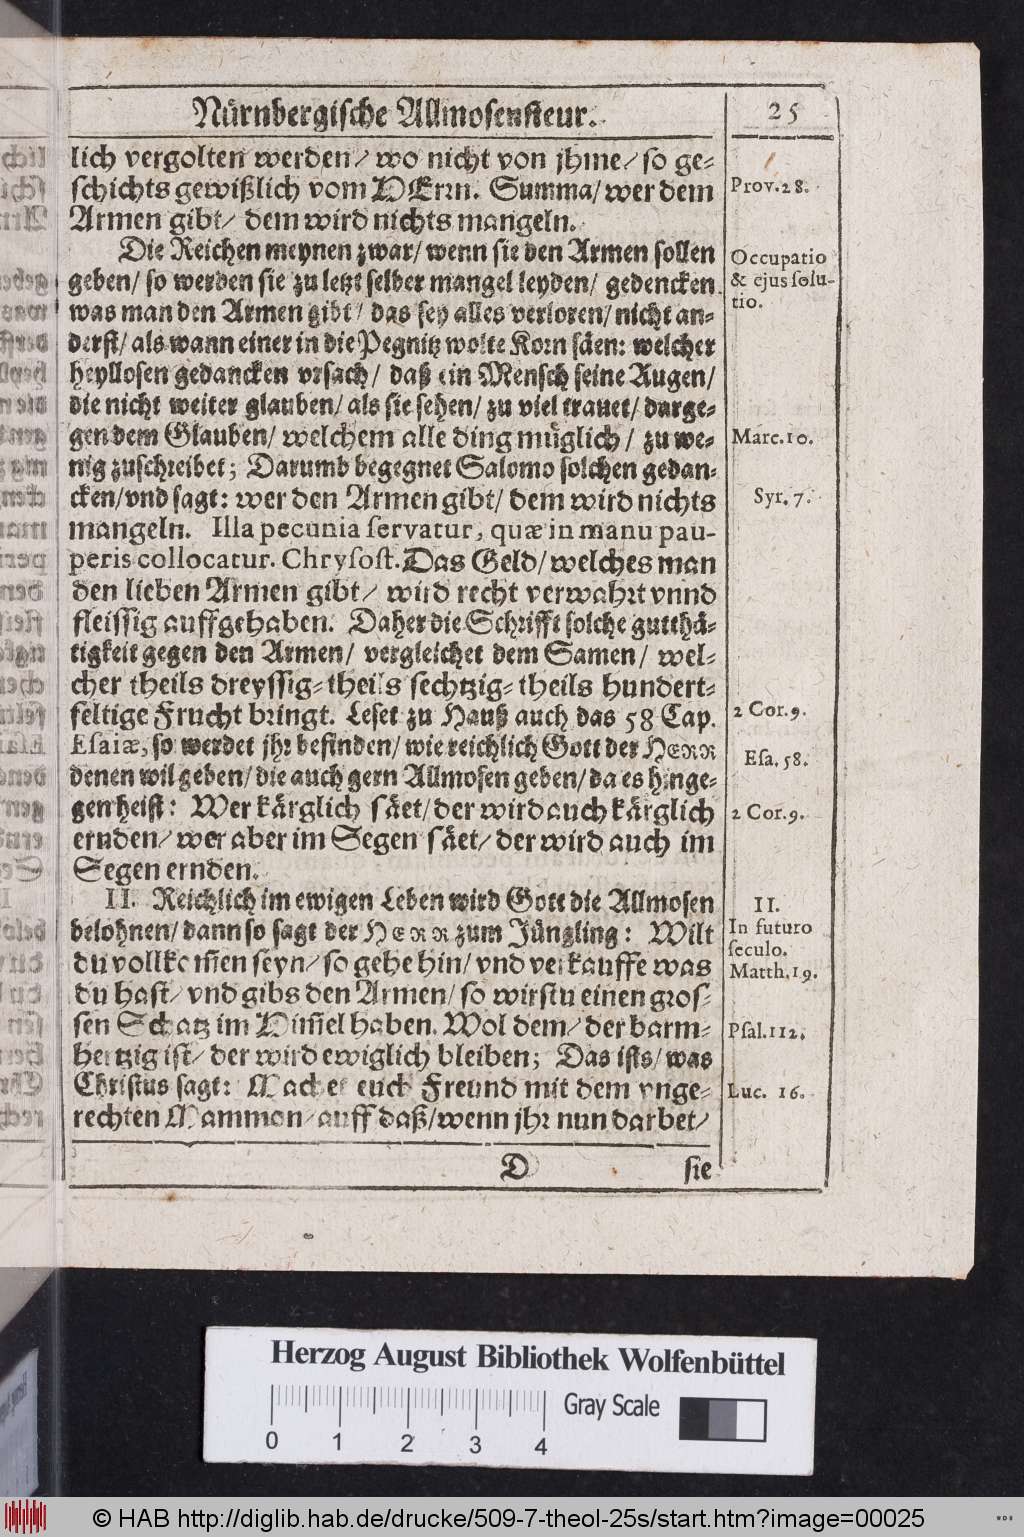 Nürnbergische Allmosensteur.
25
lich vergolten werden/ wo nicht von jhme/ so ge-
schichts gewißlich vom HErrn. Summa/ wer dem
Prov. 28.
Armen gibt/ dem wird nichts mangeln.
Die Reichen meynen zwar/ wenn sie den Armen sollen
Occupatio
geben/ so werden sie zu letzt selber mangel leyden/ gedencken
& ejus solu-
was man den Armen gibt/ das sey alles verloren/ nicht an-
tio.
derst/ als wann einer in die Pegnitz wolte Korn säen: welcher
heyllosen gedancken vrsach/ daß ein Mensch seine Augen/
die nicht weiter glauben/ als sie sehen/ zu viel trauet/ darge-
gen dem Glauben/ welchem alle ding müglich/ zu we-
Marc. 10.
nig zuschreibet; Darumb begegnet Salomo solchen gedan-
cken/ vnd sagt: wer den Armen gibt/ dem wird nichts
Syr. 7.
mangeln. Illa pecunia servatur, quæ in manu pau-
peris collocatur. Chrysost. Das Geld/ welches man
den lieben Armen gibt/ wird recht verwahrt vnnd
fleissig auffgehaben. Daher die Schrifft solche gutthä-
tigkeit gegen den Armen/ vergleichet dem Samen/ wel-
cher theils dreyssig-theils sechtzig-theils hundert-
feltige Frucht bringt. Leset zu Hauß auch das 58 Cap.
2 Cor. 9.
Esaiæ, so werdet jhr befinden/ wie reichlich Gott der HERR
Esa. 58.
denen wil geben/ die auch gern Allmosen geben/ da es hinge-
gen heist: Wer kärglich säet/ der wird auch kärglich
2 Cor. 9.
ernden/ wer aber im Segen säet/ der wird auch im
Segen ernden.
II. Reichlich im ewigen Leben wird Gott die Allmosen
II.
belohnen/ dann so sagt der HERR zum Jüngling: Wilt
In futuro
seculo.
du vollkom̃en seyn/ so gehe hin/ vnd verkauffe was
Matth. 19.
du hast/ vnd gibs den Armen/ so wirstu einen gros-
sen Schatz im Him̃el haben. Wol dem/ der barm-
Psal. 112.
hertzig ist/ der wird ewiglich bleiben; Das ists/ was
Christus sagt: Machet euch Freund mit dem vnge-
Luc. 16.
rechten Mammon/ auff daß/ wenn jhr nun darbet/
D
sie
Herzog August Bibliothek Wolfenbüttel
0 1 2 3 4
Gray Scale
© HAB http://diglib.hab.de/drucke/509-7-theol-25s/start.htm?image=00025